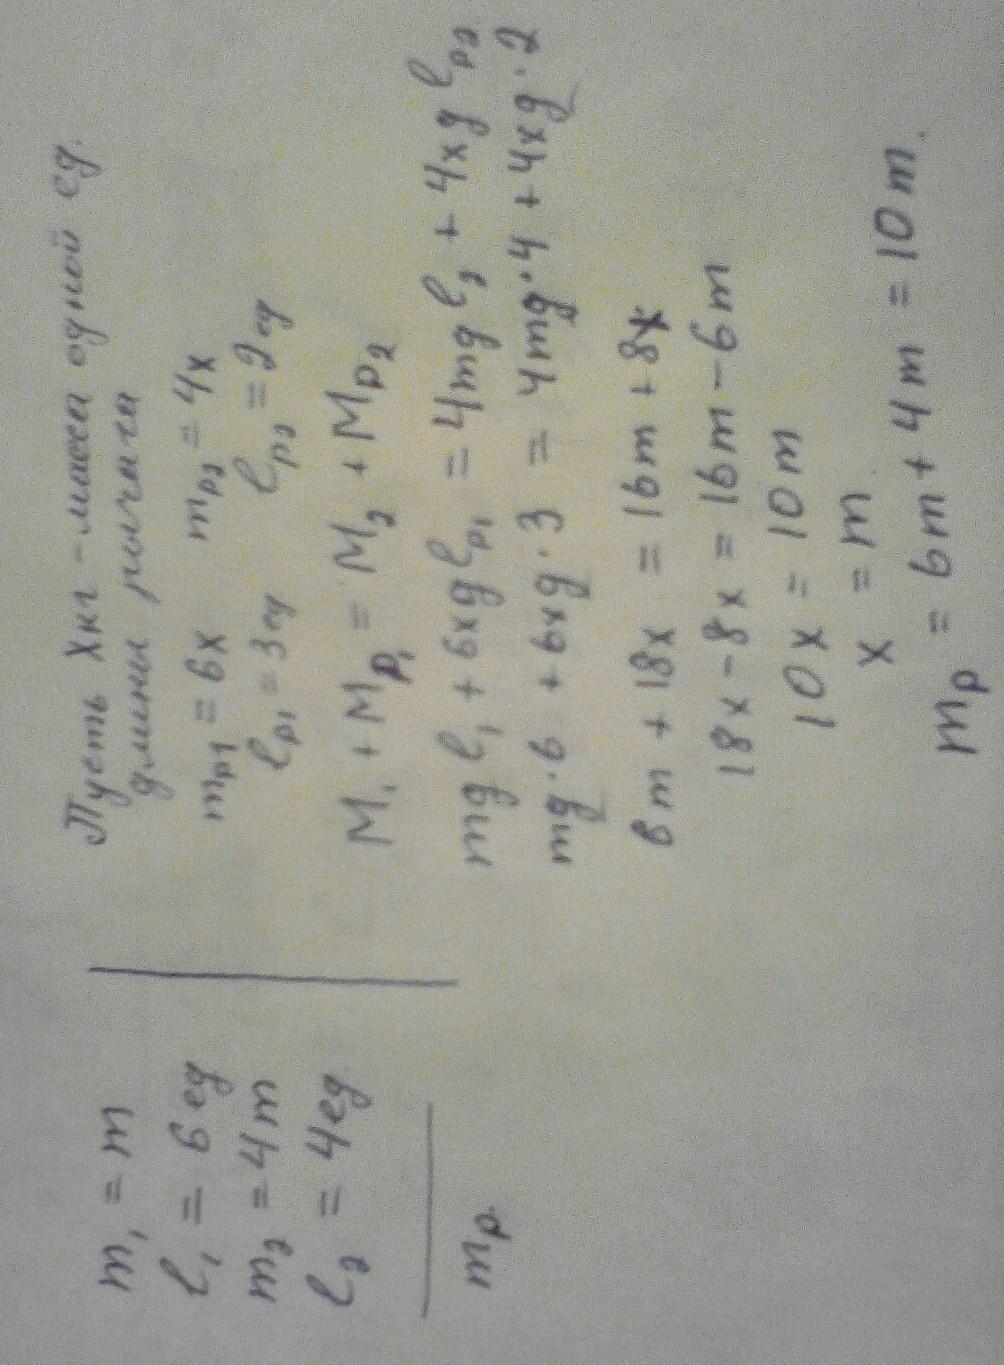 m₁ = m
l₁ = 6 ед
m₂ = 4m
l₂ = 4 ед
mр
Пусть X кг - масса одной ед.
длины рычага
mр1 = 6x mр2 = 4x
lр1 = 3 ед lр2 = 2 ед
M₁ + Mр1 = M₂ + Mр2
mgl₁ + 6xglр1 = 4mgl₂ + 4xglр2
mg·6 + 6xg·3 = 4mg·4 + 4xg·2
6m + 18x = 16m + 8x
18x - 8x = 16m - 6m
10x = 10m
x = m
mр = 6m + 4m = 10m.